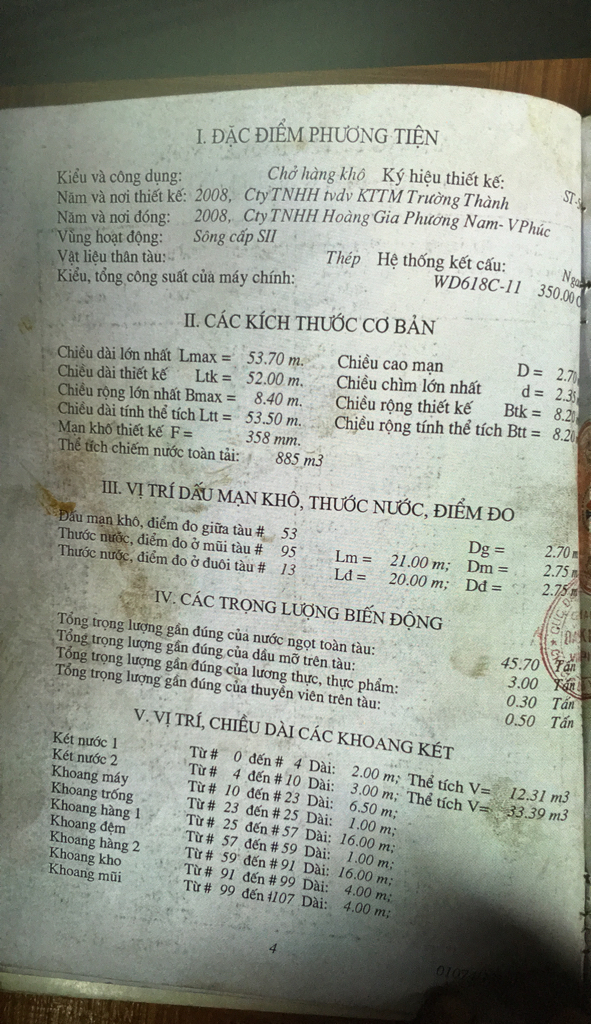 I. ĐẶC ĐIỂM PHƯƠNG TIỆN
Kiểu và công dụng: Chở hàng khô Ký hiệu thiết kế: ST-
Năm và nơi thiết kế: 2008, Cty TNHH tvdv KTTM Trường Thành
Năm và nơi đóng: 2008, Cty TNHH Hoàng Gia Phương Nam- VPhúc
Vùng hoạt động: Sông cấp SII
Vật liệu thân tàu: Thép Hệ thống kết cấu:
Kiểu, tổng công suất của máy chính: WD618C-11 350.00
II. CÁC KÍCH THƯỚC CƠ BẢN
Chiều dài lớn nhất Lmax = 53.70 m. Chiều cao mạn D = 2.70
Chiều dài thiết kế Ltk = 52.00 m. Chiều chìm lớn nhất d = 2.35
Chiều rộng lớn nhất Bmax = 8.40 m. Chiều rộng thiết kế Btk = 8.20
Chiều dài tính thể tích Ltt = 53.50 m. Chiều rộng tính thể tích Btt = 8.20
Mạn khô thiết kế F = 358 mm.
Thể tích chiếm nước toàn tải: 885 m3
III. VỊ TRÍ DẤU MẠN KHÔ, THƯỚC NƯỚC, ĐIỂM ĐO
Dấu mạn khô, điểm đo giữa tàu # 53 Dg = 2.70 m
Thước nước, điểm đo ở mũi tàu # 95 Lm = 21.00 m; Dm = 2.75 m
Thước nước, điểm đo ở đuôi tàu # 13 Lđ = 20.00 m; Dđ = 2.75 m
IV. CÁC TRỌNG LƯỢNG BIẾN ĐỘNG
Tổng trọng lượng gần đúng của nước ngọt toàn tàu: 45.70 Tấn
Tổng trọng lượng gần đúng của dầu mỡ trên tàu: 3.00 Tấn
Tổng trọng lượng gần đúng của lương thực, thực phẩm: 0.30 Tấn
Tổng trọng lượng gần đúng của thuyền viên trên tàu: 0.50 Tấn
V. VỊ TRÍ, CHIỀU DÀI CÁC KHOANG KÉT
Két nước 1 Từ # 0 đến # 4 Dài: 2.00 m; Thể tích V= 12.31 m3
Két nước 2 Từ # 4 đến # 10 Dài: 3.00 m; Thể tích V= 33.39 m3
Khoang máy Từ # 10 đến # 23 Dài: 6.50 m;
Khoang trống Từ # 23 đến # 25 Dài: 1.00 m;
Khoang hàng 1 Từ # 25 đến # 57 Dài: 16.00 m;
Khoang đệm Từ # 57 đến # 59 Dài: 1.00 m;
Khoang hàng 2 Từ # 59 đến # 91 Dài: 16.00 m;
Khoang kho Từ # 91 đến # 99 Dài: 4.00 m;
Khoang mũi Từ # 99 đến #107 Dài: 4.00 m;
4